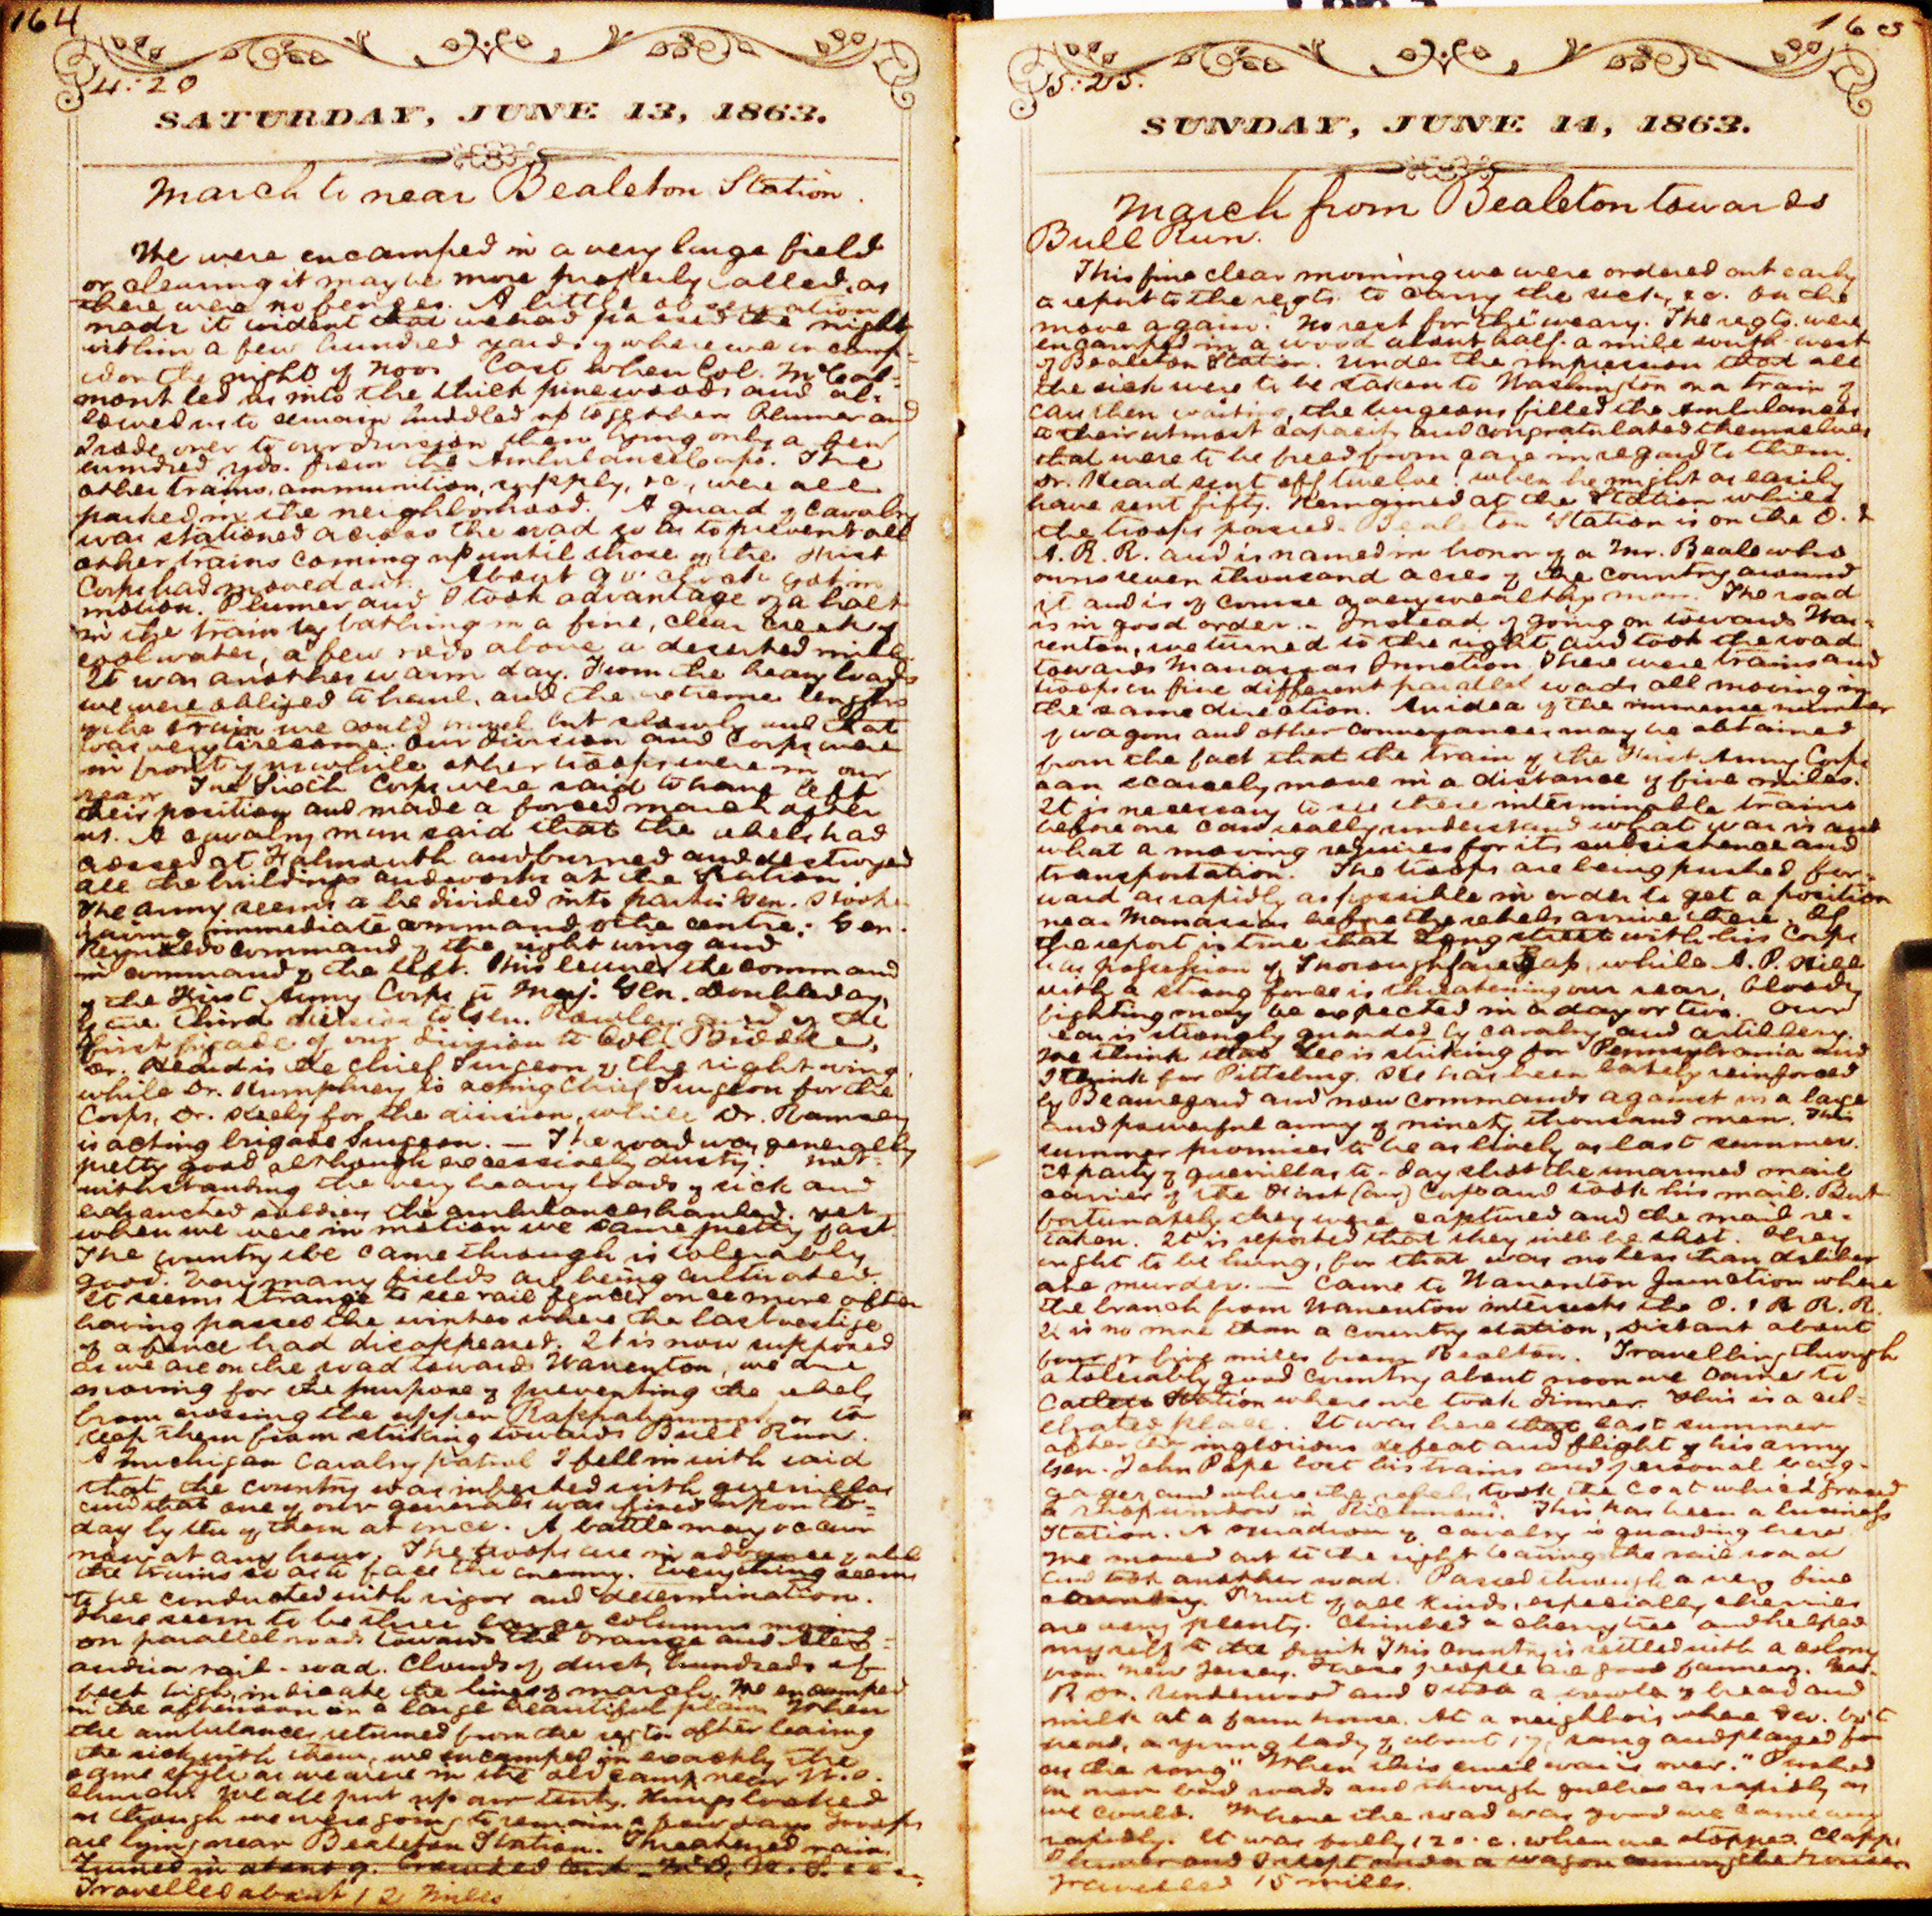 164
4:20
SATURDAY, JUNE 13, 1863.
March to near Bealeton Station.
We were encamped in a very large field
or clearing it may be more properly called, as
there were no fences. A little observation
made it evident that we had passed the night
within a few hundred yards of where we encamp-
ed on the night of Nov. last when Col. McCal-
mont led us into the thick pine woods and al-
lowed us to remain huddled up together. Plumer and
I rode over to our division then lying only a few
hundred yds. from the Ambulance Corps. The
other trains, ammunition, supply, &c., were all
parked in the neighborhood. A guard of cavalry
was stationed across the road so as to prevent all
other trains coming up until those of the First
Corps had moved out. About 9 o'clock got in
motion. Plumer and I took advantage of a halt
in the train by bathing in a fine, clear creek of
cool water, a few rods above a deserted mill.
It was another warm day. From the heavy loads
we were obliged to haul, and the extreme length
of the train we could move but slowly and that
was very tiresome. Our division and Corps were
in front of us while other troops were in our
rear. The Sixth Corps were said to have left
their position and made a forced march after
us. A cavalry man said that the rebels had
crossed at Falmouth and burned and destroyed
all the buildings and works at the Station.
The army seems to be divided into parts: Gen. Hooker
having immediate command of the centre; Gen.
Reynolds command of the right wing and
in command of the left. This leaves the command
of the First Army Corps to Maj. Gen. Doubleday,
of the third division to Gen. Rowley and of the
first brigade of our division to Col. Biddle.
Dr. Heard is the chief Surgeon of the right wing,
while Dr. Humphrey is acting Chief Surgeon for the
Corps, Dr. for the division, while Dr. Ramsey
is acting brigade Surgeon. — The road was generally
pretty good although excessively dusty. Not-
withstanding the very heavy loads of sick and
exhausted soldiers the ambulances hauled, yet
when we were in motion we came pretty fast.
The country we came through is tolerably
good. Very many fields are being cultivated.
It seems strange to see rail fences once more after
having passed the winter where the last vestige
of a fence had disappeared. It is now supposed
as we are on the road towards Warrenton, we are
moving for the purpose of preventing the rebels
from crossing the upper Rappahannock or to
keep them from striking towards Bull Run.
A Michigan Cavalry patrol I fell in with said
that the country was infested with guerillas
and that one of our generals was fired upon to-
day by ten of them at once. A battle may occur
now at any hour. The troops are in advance of all
the trains so as to face the enemy. Everything seems
to be conducted with vigor and determination.
There seem to be three large columns moving
on parallel roads towards the Orange and Alex-
andria rail-road. Clouds of dust, hundreds of
feet high, indicate the lines of march. We encamped
in the afternoon in a large beautiful plain. When
the ambulances returned from the regts. after leaving
the sick with them, we encamped in exactly the
same style as we were in the old camp near W. O.
church. We all put up our tents. Things looked
as though we were going to remain a few days. Troops
are lying near Bealeton Station. Threatened rain.
Turned in about 9.
Travelled about 12 miles
165
5:25.
SUNDAY, JUNE 14, 1863.
March from Bealeton towards
Bull Run.
This fine clear morning we were ordered out early
to report to the regts. to carry the sick, &c. On the
move again. "No rest for the" weary. The regts. were
encamped in a wood about half a mile south-west
of Bealeton Station. Under the impression that all
the sick were to be taken to Washington on a train of
cars then waiting, the surgeons filled the Ambulances
to their utmost capacity and congratulated themselves
that were to be freed from care in regard to them.
Dr. Heard sent off twelve! when he might as easily
have sent fifty. Remained at the Station while
the troops passed. Bealeton Station is on the O. &
A. R. R. and is named in honor of a Mr. Beale who
owns seven thousand acres of the country around
it and is of course a very wealthy man. The road
is in good order. – Instead of going on towards War-
renton, we turned to the right and took the road
towards Manassas Junction. There were trains and
troops on five different parallel roads all moving in
the same direction. An idea of the immense number
of wagons and other conveyances may be obtained
from the fact that the train of the First Army Corps
can scarcely move in a distance of five miles.
It is necessary to see these interminable trains
before one can really understand what war is and
what a moving requires for its subsistence and
transportation. The troops are being pushed for-
ward as rapidly as possible in order to get a position
near Manassas before the rebels arrive there. If
the report is true that Longstreet with his Corps
has possession of Thoroughfare Gap, while A. P. Hill
with a strong force is threatening our rear, bloody
fighting may be expected in a day or two. Our
rear is strongly guarded by cavalry and artillery.
We think that Lee is striking for Pennsylvania and
I think for Pittsburg. He has been lately reinforced
by Beauregard and now commands against us a large
and powerful army of ninety thousand men. This
summer promises to be as lively as last summer.
A party of guerillas to-day shot the unarmed mail
carrier of the First (our) Corps and took his mail. But
fortunately they were captured and the mail re-
taken. It is reported that they will be shot. They
ought to be hung, for that was no less than deliber
ate murder. — Came to Warrenton Junction where
the branch from Warrenton intersects the O. & A. R. R.
It is no more than a country station, distant about
four or five miles from Bealton. Travelling through
a tolerably good country about noon we came to
Catlett Station where we took dinner. This is a cel-
ebrated place. It was here that last summer
after the inglorious defeat and flight of his army
Gen. John Pope lost his trains and personal bag-
gage and where the rebels took the coat which graced
a shop window in Richmond. This has been a business
Station. A squadron of cavalry is guarding here.
We moved out to the right leaving the rail road
and took another road. Passed through a very fine
country. Fruit of all kinds, especially cherries
are very plenty. Climbed a cherry tree and helped
myself to the fruit. This country is settled with a colony
from New Jersey. These people are good farmers.
Underwood and I took a bowl of bread and
milk at a farm house. At a neighbor's where
a young lady of about 17, sang and played for
us the song "When this cruel war is over." Pushed
on over bad roads and through gullies as rapidly as
we could. Where the road was good we came very
rapidly. It was fully 12 o.c. when we stopped. Clapp,
Plumer and I slept under a wagon among the horses.
Travelled 15 miles.